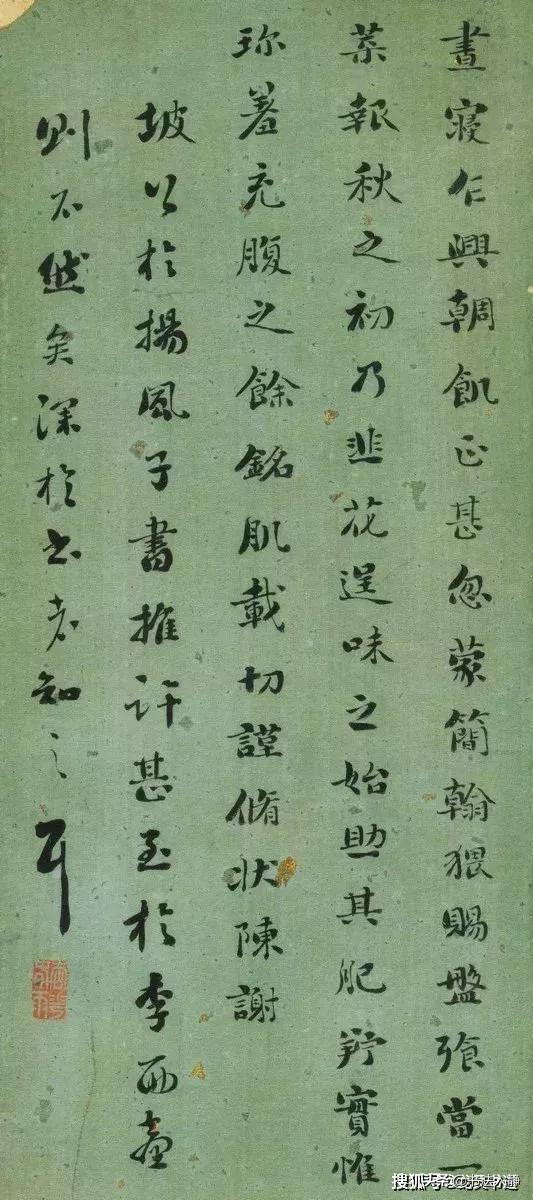 晝寢乍興輖飢正甚忽蒙簡翰猥賜盤飡當一
葉報秋之初乃韭花逞味之始助其肥羜實惟
珎羞充腹之餘銘肌載切謹脩狀陳謝
坡公於楊風子書推許甚至於李西臺
則不然矣深於書者知之耳